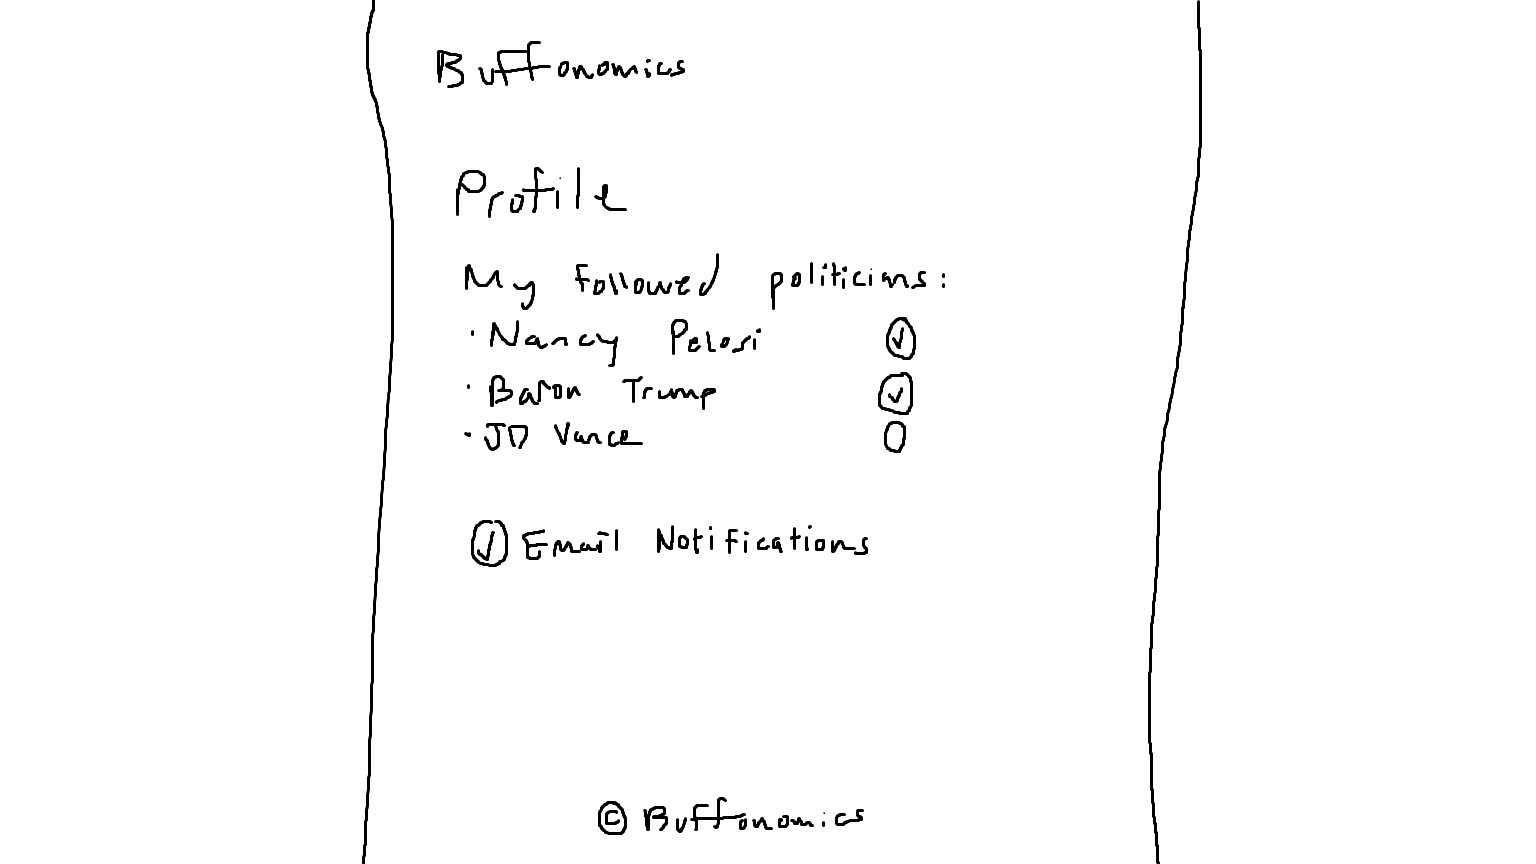 Buffonomics
Profile
My followed politicians:
· Nancy Pelosi
· Baron Trump
· JD Vance
Email Notifications
© Buffonomics